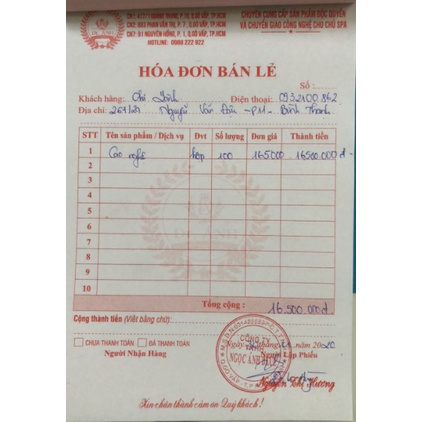 CN1: 477/1 QUANG TRUNG, P. 10, Q.GÒ VẤP, TP.HCM
CN2: 683 PHAN VĂN TRỊ, P. 7, Q.GÒ VẤP, TP.HCM
CN7: 91 NGUYÊN HỒNG, P. 1, Q.GÒ VẤP, TP.HCM
HOTLINE: 0986 222 022
CHUYÊN CUNG CẤP SẢN PHẨM ĐỘC QUYỀN
VÀ CHUYỂN GIAO CÔNG NGHỆ CHO CHỦ SPA
HÓA ĐƠN BÁN LẺ
Số :
Khách hàng: Chị Điện thoại: 0932100862
Địa chỉ: Nguyễn Văn Đậu - P11 - Bình Thạnh
STT Tên sản phẩm / Dịch vụ Đvt Số lượng Đơn giá Thành tiền
1 Cao nghệ hộp 100 165000 16500.000đ
2
3
4
5
6
7
8
9
10
Tổng cộng : 16.500.000đ
Cộng thành tiền (Viết bằng chữ):
CHƯA THANH TOÁN ĐÃ THANH TOÁN
Người Nhận Hàng
Ngày tháng năm 2020
Người Lập Phiếu
CÔNG TY
NGỌC ÁNH
Hương
Xin chân thành cảm ơn Quý khách !